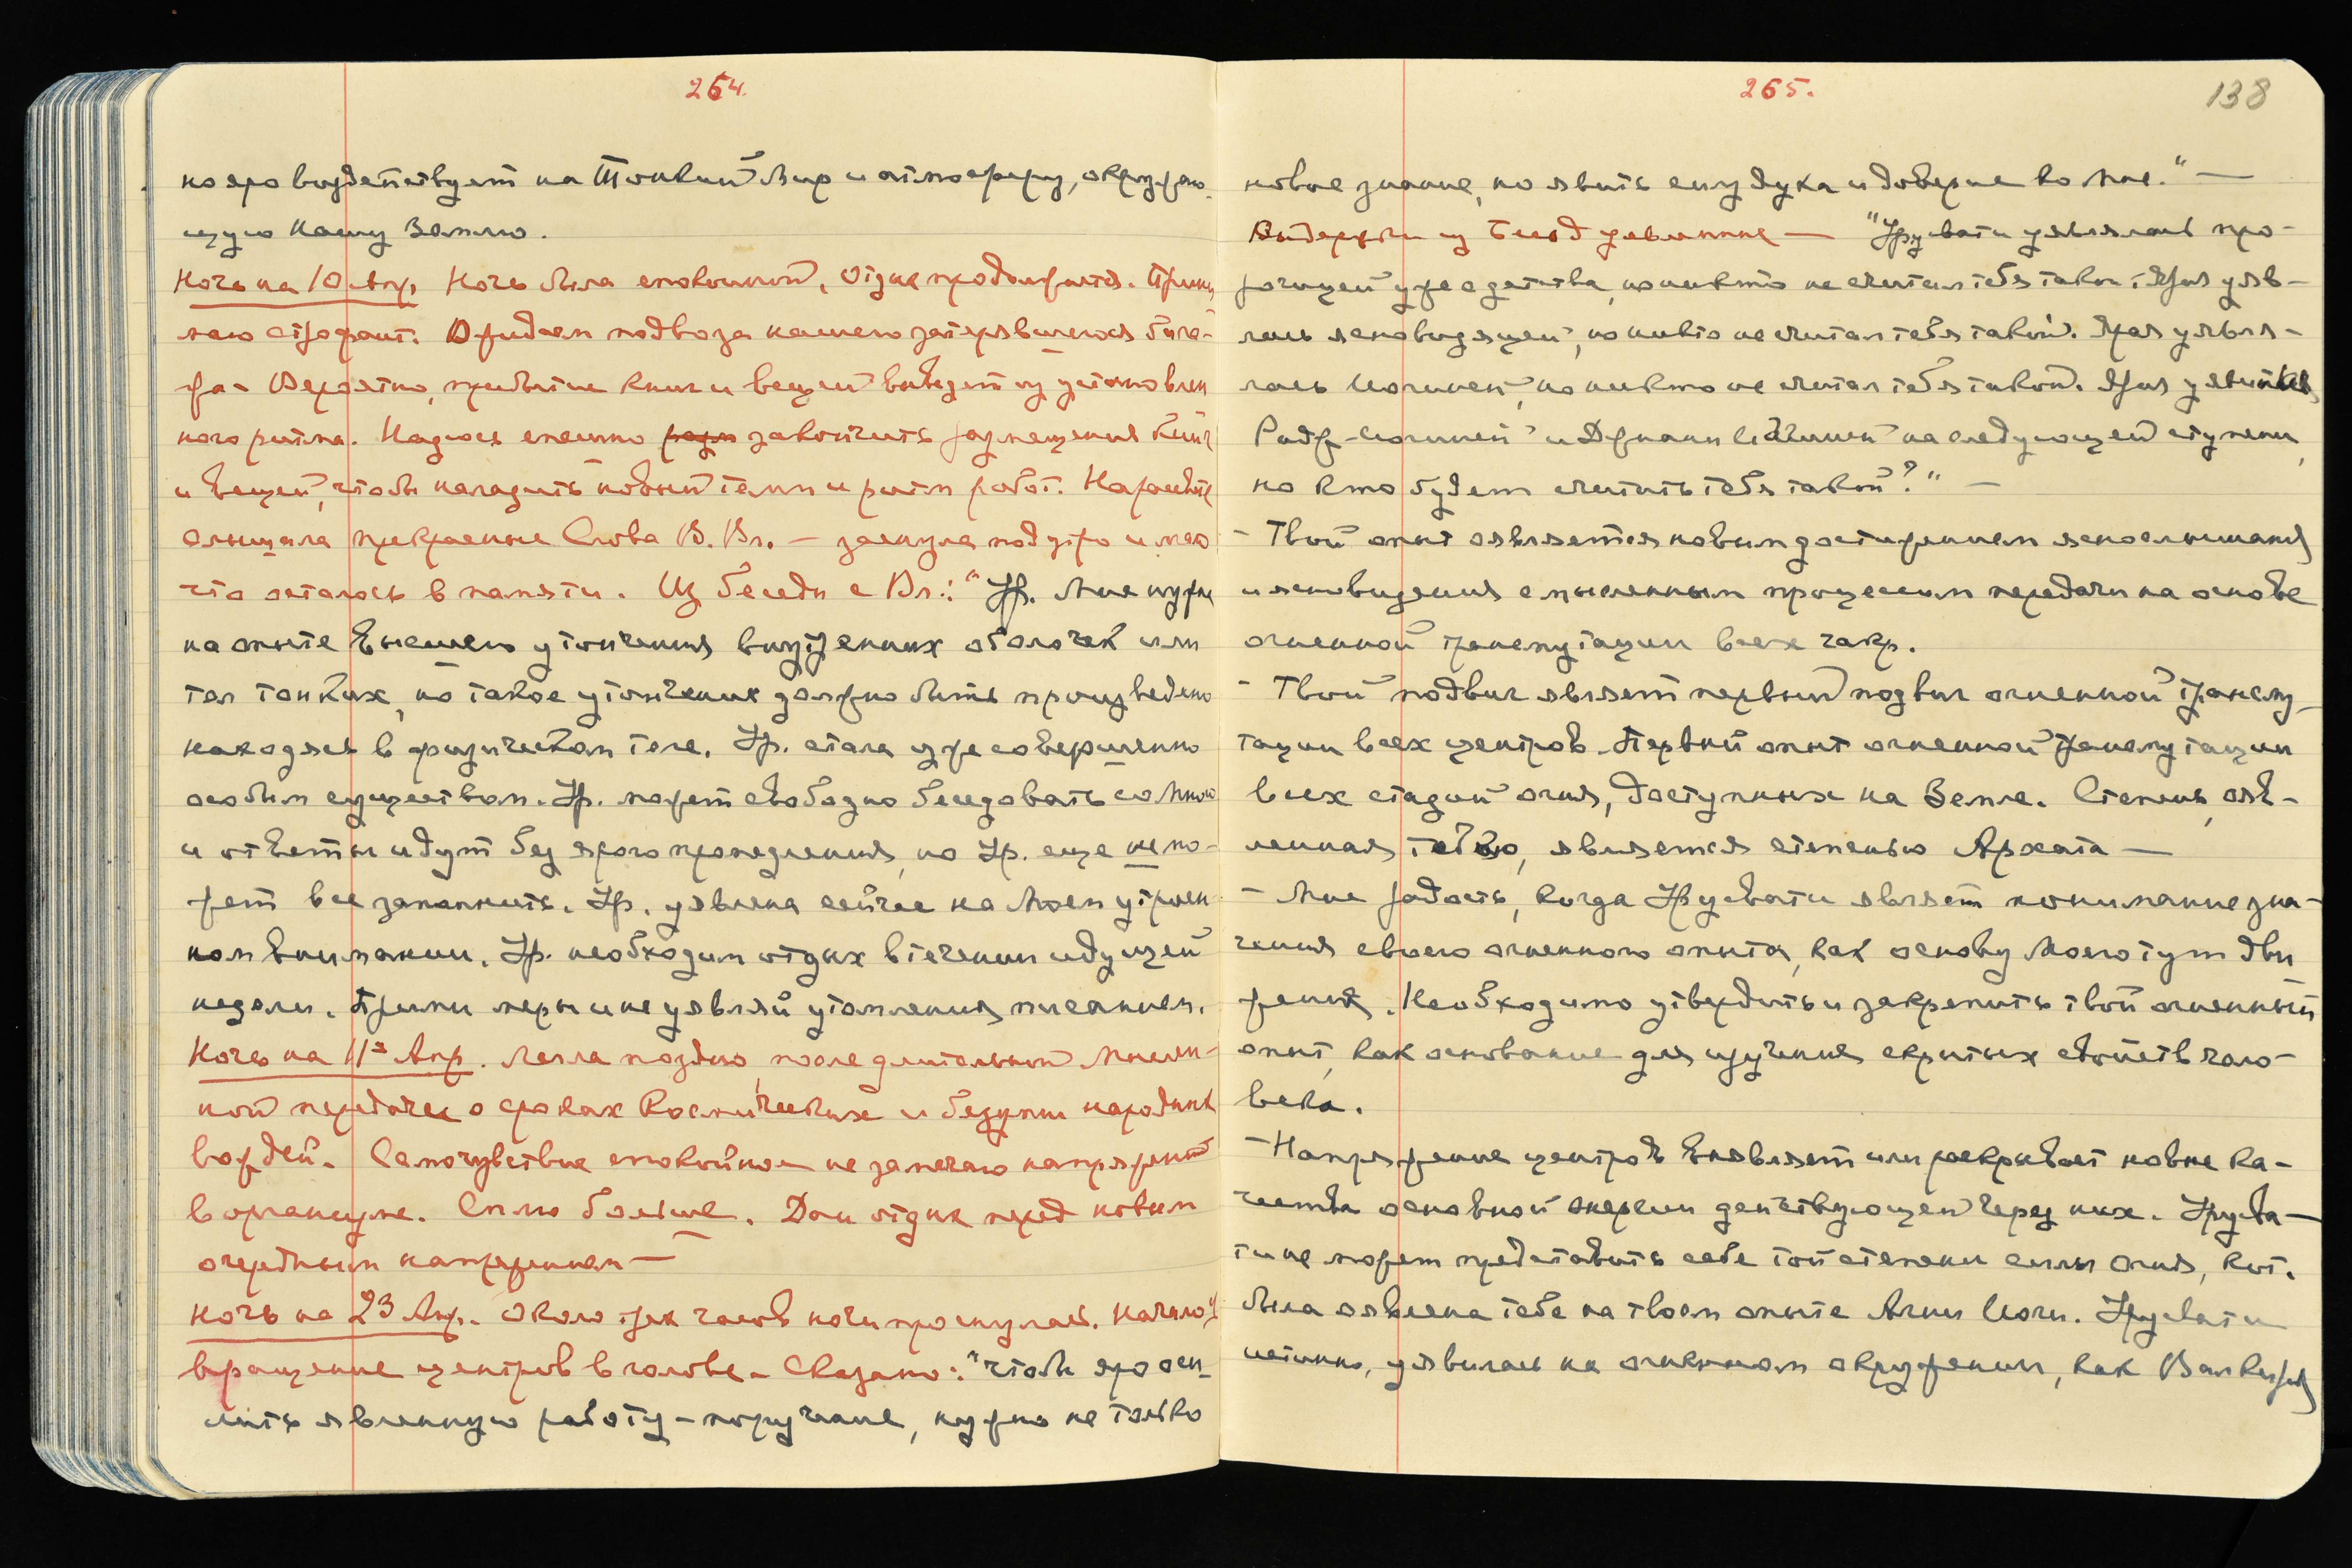 264.
но яро воздействует на Тонкий Мир и атмосферу, окружаю-
щую нашу Землю.
Ночь на 10 Апр. Ночь была спокойной. Отдых продолжается. Прини-
маю строфант. Ожидаем подвоза нашего затерявшегося бага-
жа. Вероятно, прибытие книг и вещей выведет из установлен
ного ритма. Надеюсь спешно закончить размещения книг
и вещей, чтобы наладить новый темп и ритм работ. На рассвете
слышала прекрасные Слова В. Вл. — заснула под утро и мало
что осталось в памяти. Из беседы с Вл.: "Ур. Мне нужна
на опыте высшего утончения внутренних оболочек или
тел тонких, но такое утончение должно быть произведено
находясь в физическом теле. Ур. стала уже совершенно
особым существом. Ур. может свободно беседовать со Мною
и ответы идут без ярого промедления, но Ур. еще не мо-
жет все запомнить. Ур. явлена сейчас на Моем утроен-
ном внимании. Ур. необходим отдых в течении идущей
недели. Прими меры и не являй утомления писанием.
Ночь на 11ое Апр. Легла поздно, после длительной мыслен-
ной передачи о сроках Космических и безумии народных
вождей. Самочувствие спокойное не замечаю напряжений
в организме. Сплю больше. Дан отдых перед новым
очередным напряжением —
Ночь на 23 Апр. Около трех часов ночи проснулась. Началось
вращение центров в голове. Сказано: "чтобы яро оси-
лить явленную работу - поручение, нужно не только
265.
138
новое знание, но явить силу духа и доверие ко Мне." —
Выдержки из Бесед — "Урусвати уявлялась про-
рочицей уже с детства, но никто не считал тебя такой. Яро уяв-
лась ясновидящей, но никто не считал тебя такой. Яро уявля-
лась Йогиней, но никто не считал тебя такой. Яро
Радж-Йогиней и Джнани Йогиней на следующей ступени,
но кто будет считать тебя такой?" —
- Твой опыт является новым достижением яснослышания
и ясновидения с мысленным процессом передачи на основе
огненной трансмутации всех чакр.
- Твой подвиг являет первый подвиг огненной трансму-
тации всех центров. Первый опыт огненной трансмутации
всех стадий огня, доступных на Земле. Степень, явл-
ленная тобою, является степенью Архата —
- Мне радость, когда Урусвати являет понимание зна-
чения своего огненного опыта, как основу Моего тут дви
жения. Необходимо утвердить и закрепить твой огненный
опыт, как основание для изучения скрытых свойств чело-
века.
- Напряжение центров выявляет или раскрывает новые ка-
чества основной энергии действующей через них. Урусва-
ти не может представить себе той степени силы Огня, кот.
была явлена тебе на твоем опыте Агни Йоги. Урусвати
истинно, уявилась на огненном окружении, как Валкирия